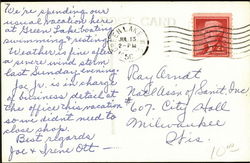 We're spending our
usual vacation here
at Green Lake boating
swimming & resting.
Weather is fine after
a severe wind storm
last Sunday evening.
Joe Jr. is in charge
of business detach at
the office this vacation
so we didnt need to
close shop.
Best regards
Joe & Irene Ott -
POST CARD
GREEN LAKE
JUL 15
2 - PM
Ray Arndt
Natl Assn of Sanit. Ins.
607 City Hall
Milwaukee
Wis.